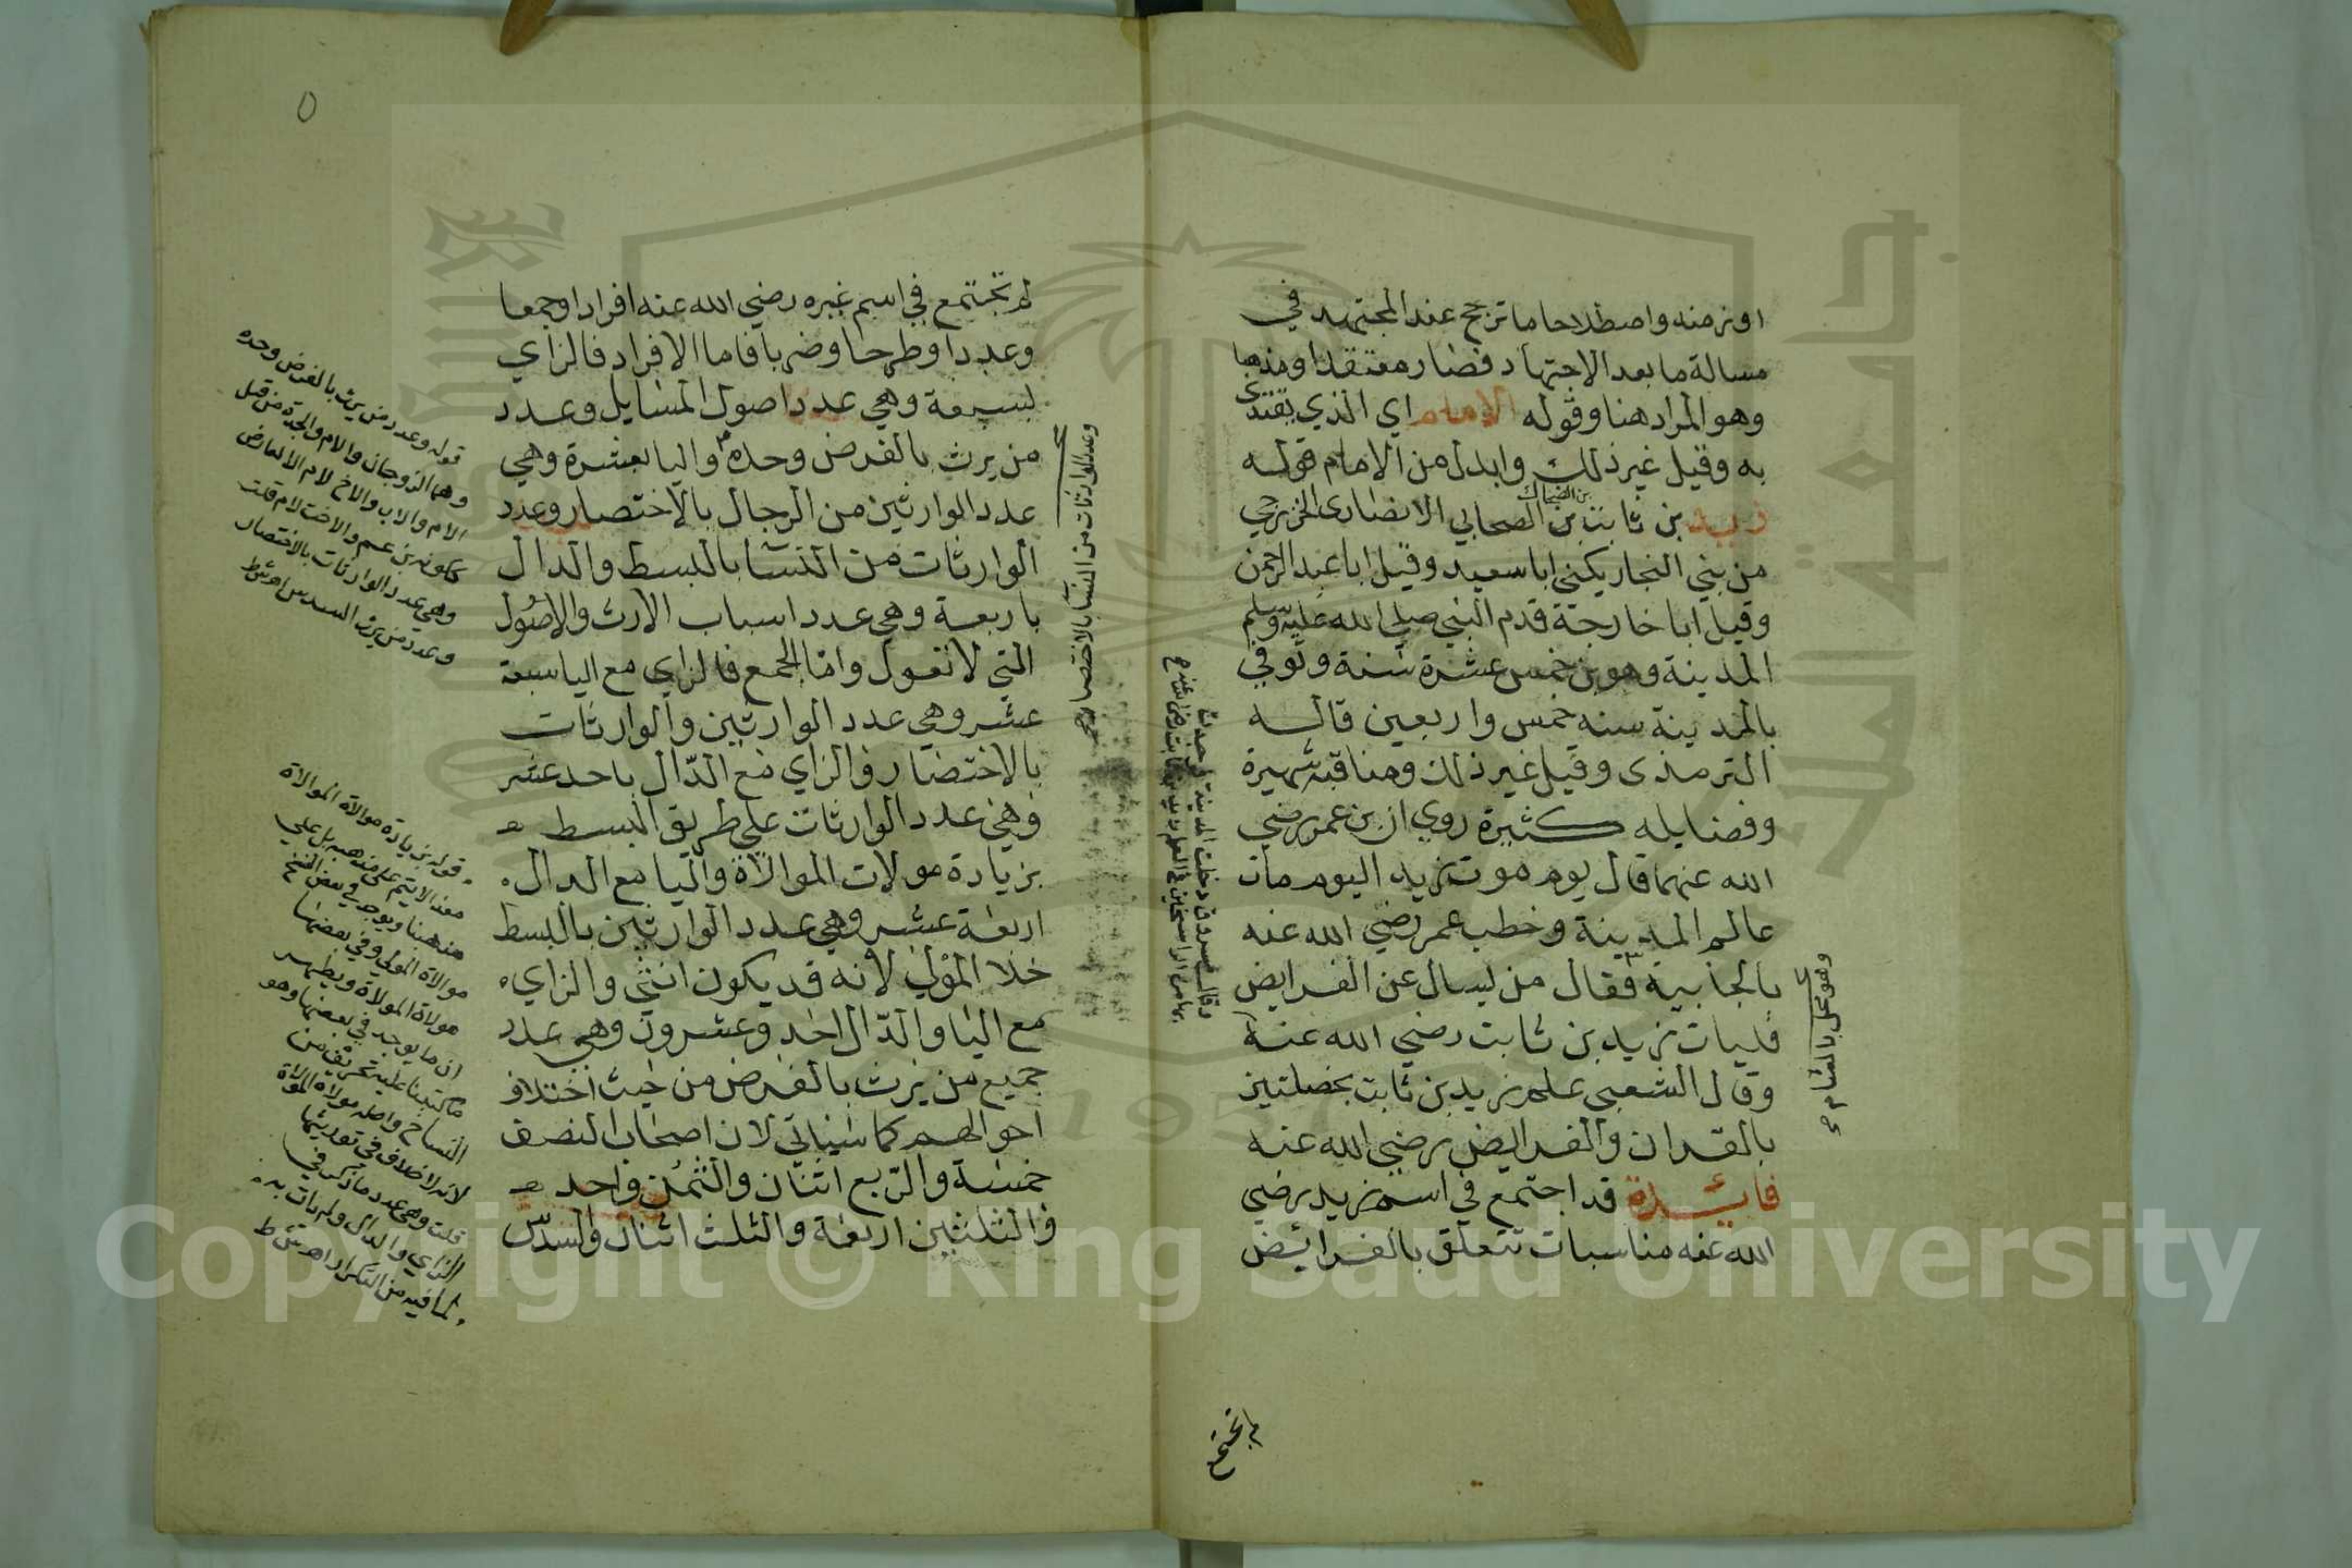 او زمنه واصطلاحا ما ترجح عند المجتهد في
مسالة ما بعد الاجتهاد فصار معتقدا ومذهبا
وهو المراد هنا وقوله الامام اي الذي يقتدى
به وقيل غير ذلك وابدل من الامام قوله
زيد بن ثابت بن الضحاك الصحابي الانصارى الخزرجي
من بني النجار يكنى ابا سعيد وقيل ابا عبد الرحمن
وقيل ابا خارجة قدم النبي صلى الله عليه وسلم
المدينة وهو بن خمس عشرة سنة وتوفي
بالمدينة سنه خمس واربعين قاله
الترمذى وقيل غير ذلك ومناقبه شهيرة
وفضايله كثيرة روي ان بن عمر رضي
الله عنهما قال يوم موت زيد اليوم مات
عالم المدينة وخطب عمر رضي الله عنه
بالجابية فقال من يسال عن الفرايض
فليات زيد بن ثابت رضي الله عنه
وقال الشعبي علم زيد بن ثابت بخصلتين
بالقران والفرايض رضي الله عنه
فائدة قد اجتمع في اسم زيد رضي
الله عنه مناسبات تتعلق بالفرائض
وهو محل بالشام
وقال مسروق دخلت المدينة فوجدت
بها من الراسخين في العلم زيد بن ثابت رضي الله عنه
لم تجتمع
٥
لم تجتمع في اسم غيره رضي الله عنه افرادا وجمعا
وعددا وطرحا وضربا فاما الافراد فالزاي
بسبعة وهي عدد اصول المسايل وعدد
من يرث بالفرض وحده واليا بعشرة وهي
عدد الوارثين من الرجال بالاختصار وعدد
الوارثات من النسا بالبسط والدال
باربعة وهي عدد اسباب الارث والاصول
التي لا تعول واما الجمع فالزاي مع اليا سبعة
عشر وهي عدد الوارثين والوارثات
بالاختصار والزاي مع الدال باحد عشر
وهي عدد الوارثات على طريق البسط
بزيادة مولات الموالاة واليا مع الدال
اربعة عشر وهي عدد الوارثين بالبسط
خلا المولى لانه قد يكون انثى والزاي
مع اليا والدال احد وعشرون وهي عدد
جميع من يرث بالفرض من حيث اختلاف
احوالهم كما سياتي لان اصحاب النصف
خمسة والربع اثنان والثمن واحد
والثلثين اربعة والثلث اثنان والسدس
وعدد الوارثات من النسا بالاختصار
قوله وعدد من يرث بالفرض وحده
وهما الزوجان والام والجدة من قبل
الام والاب والاخ لام الا لعارض
ككونه بن عم والاخت لام قلت
وهي عدد الوارثات بالاختصار
وعدد من يرث السدس اه
قوله بزيادة مولاة الموالاة
هذا لا يتم على مذهبه بل على
مذهبنا ويوجد في بعض النسخ
موالاة المولى وفي بعضها
مولاة المولاة ويظهر
ان ما يوجد في بعضها وهو
ما كتبنا عليه تحريف من
النساخ واصله مولاة المولاة
لانه لا خلاف في توريثها
قلت وهي عدد ما ذكر في
الزاي والدال ولم يات به
لما فيه من التكرار اه